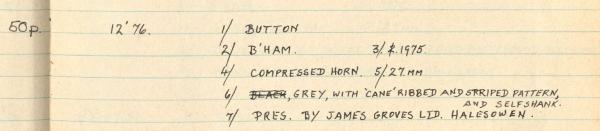 50p. 12'76. 1/ BUTTON
2/ B'HAM. 3/ 1975.
4/ COMPRESSED HORN. 5/ 27MM
6/ BLACK, GREY, WITH 'CANE' RIBBED AND STRIPED PATTERN,
AND SELFSHANK.
7/ PRES. BY JAMES GROVES LTD. HALESOWEN.